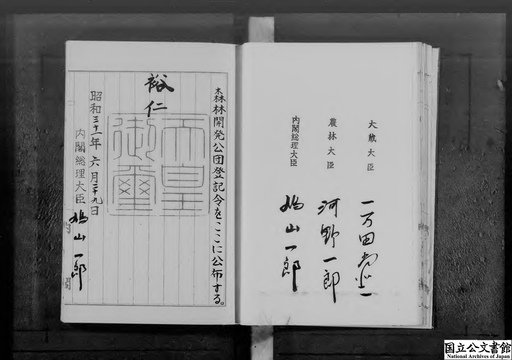 大蔵大臣 一万田尚登
農林大臣 河野一郎
内閣総理大臣 鳩山一郎
森林開発公団登記令をここに公布する。
裕仁
天皇
御璽
昭和三十一年六月二十九日
内閣総理大臣 鳩山一郎
国立公文書館
National Archives of Japan